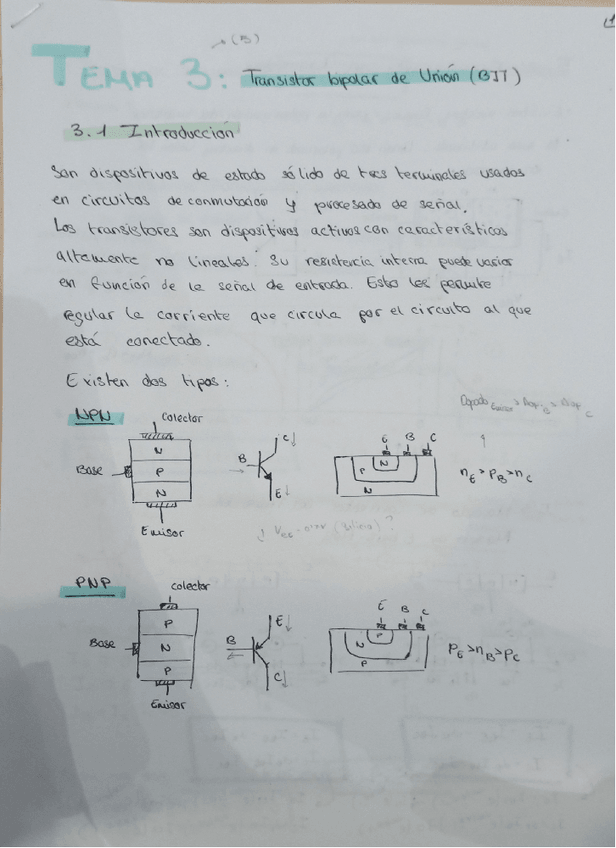 (5)
TEMA 3: Transistor bipolar de Unión (BJT)
3.1 Introducción
Son dispositivos de estado sólido de tres terminales usados
en circuitos de conmutación y procesado de señal.
Los transistores son dispositivos activos con características
altamente no lineales. Su resistencia interna puede variar
en función de la señal de entrada. Esto les permite
regular la corriente que circula por el circuito al que
está conectado.
Existen dos tipos:
NPN
Colector
N
Base P
N
Emisor
B C E
E B C
N
P
N
nE > pB > nC
PNP
Colector
P
Base N
P
Emisor
E B C
E B C
P
N
P
pE > nB > pC